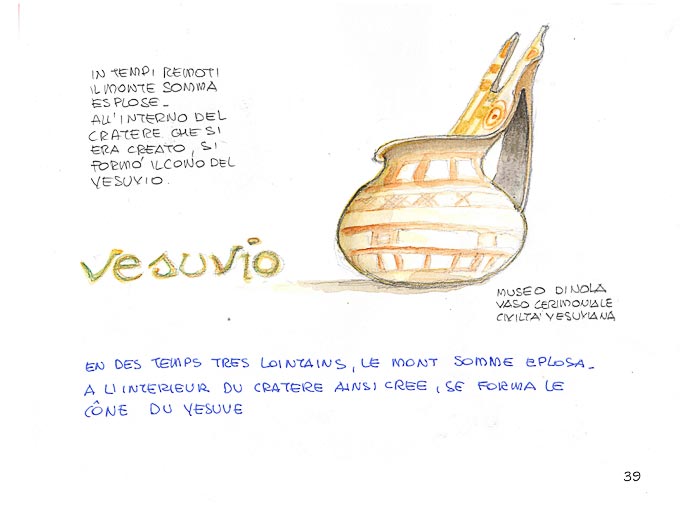 IN TEMPI REMOTI
IL MONTE SOMMA
ESPLOSE_
ALL'INTERNO DEL
CRATERE CHE SI
ERA CREATO, SI
FORMO' IL CONO DEL
VESUVIO.
vesuvio
MUSEO DI NOLA
VASO CERIMONIALE
CIVILTA' VESUVIANA
EN DES TEMPS TRES LOINTAINS, LE MONT SOMME EPLOSA_
A L'INTERIEUR DU CRATERE AINSI CREE, SE FORMA LE
CÔNE DU VESUVE
39